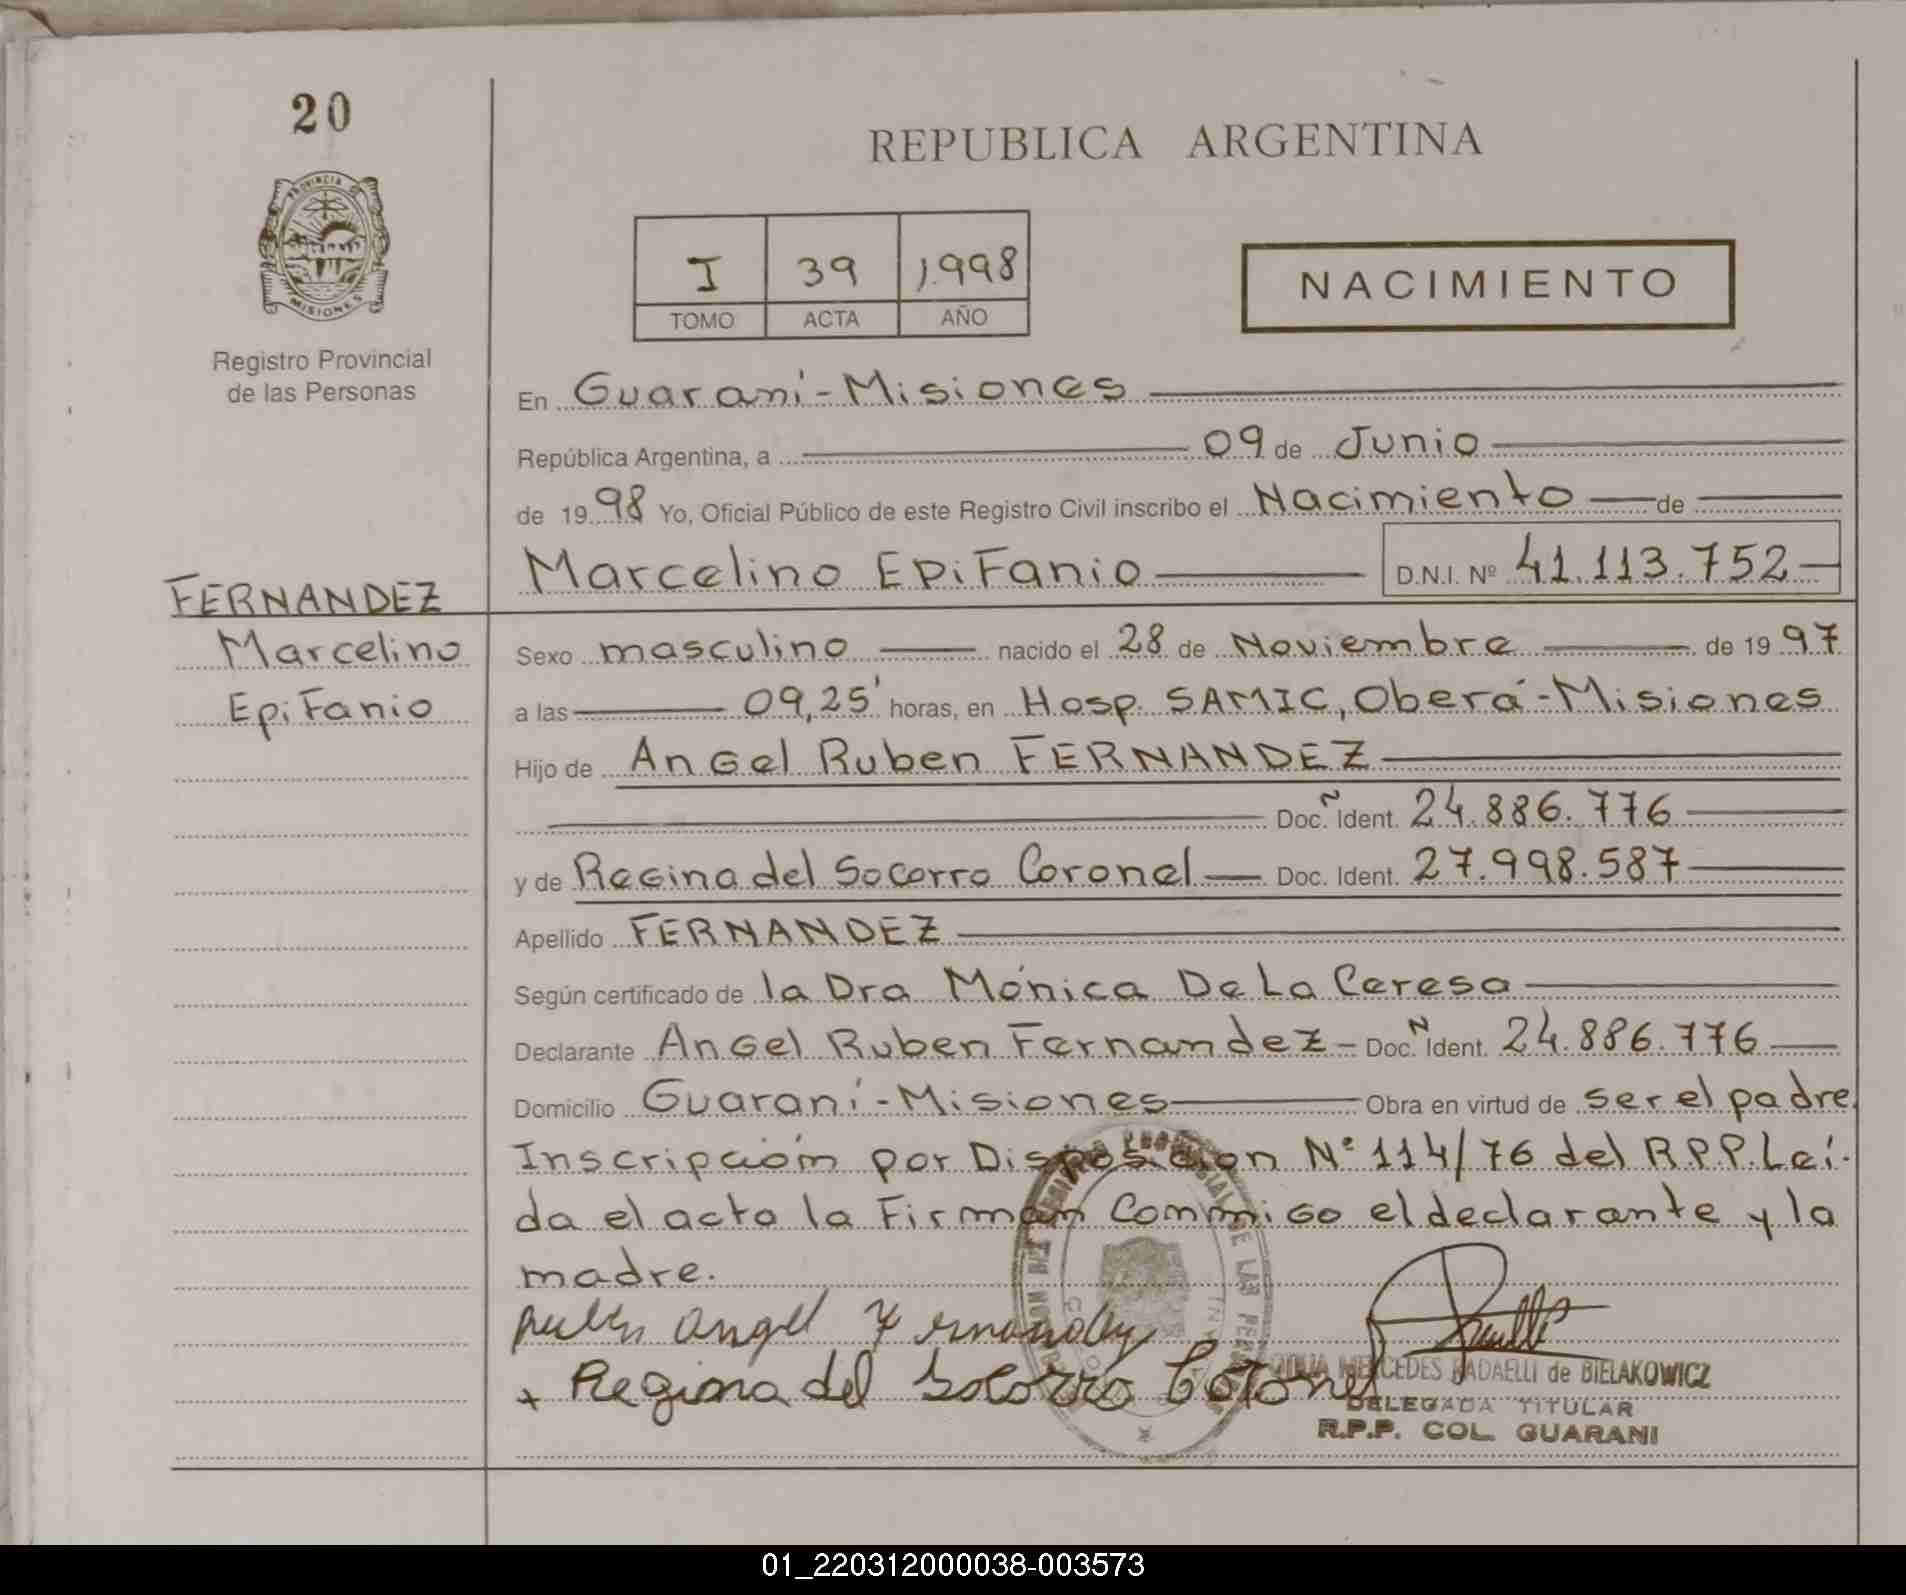 20
PROVINCIA DE
MISIONES
Registro Provincial
de las Personas
REPUBLICA ARGENTINA
I 39 1.998
TOMO ACTA AÑO
NACIMIENTO
En Guaraní-Misiones
República Argentina, a 09 de Junio
de 19 98 Yo, Oficial Público de este Registro Civil inscribo el Nacimiento de
Marcelino EpiFanio D.N.I. Nº 41.113.752
FERNANDEZ
Marcelino
EpiFanio
Sexo masculino nacido el 28 de Noviembre de 19 97
a las 09,25' horas, en Hosp. SAMIC, Oberá-Misiones
Hijo de Angel Ruben FERNANDEZ
Doc. N Ident. 24.886.776
y de Regina del Socorro Coronel Doc. Ident. 27.998.587
Apellido FERNANDEZ
Según certificado de la Dra Mónica De La Ceresa
Declarante Angel Ruben Fernandez - Doc. N Ident. 24.886.776
Domicilio Guaraní-Misiones Obra en virtud de ser el padre.
Inscripción por Disposición Nº 114/76 del R.P.P. Leí-
da el acta la Firman Conmigo el declarante y la
madre.
Ruben Angel Fernandez
+ Regina del Socorro Coronel
MERCEDES RADAELLI de BIELAKOWICZ
DELEGADA TITULAR
R.P.P. COL. GUARANI
01_220312000038-003573